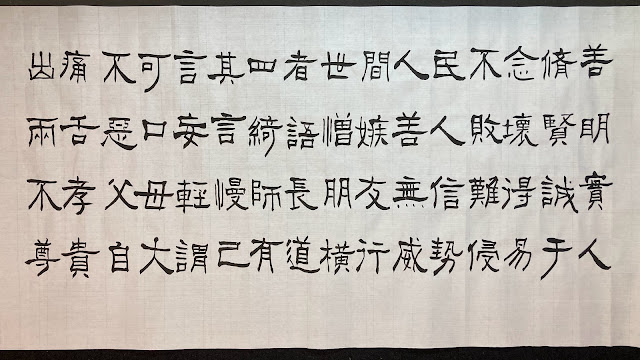 出痛不可言其四者世間人民不念脩善
兩舌惡口妄言綺語憎嫉善人敗壞賢明
不孝父母輕慢師長朋友無信難得誠實
尊貴自大謂己有道橫行威勢侵易于人